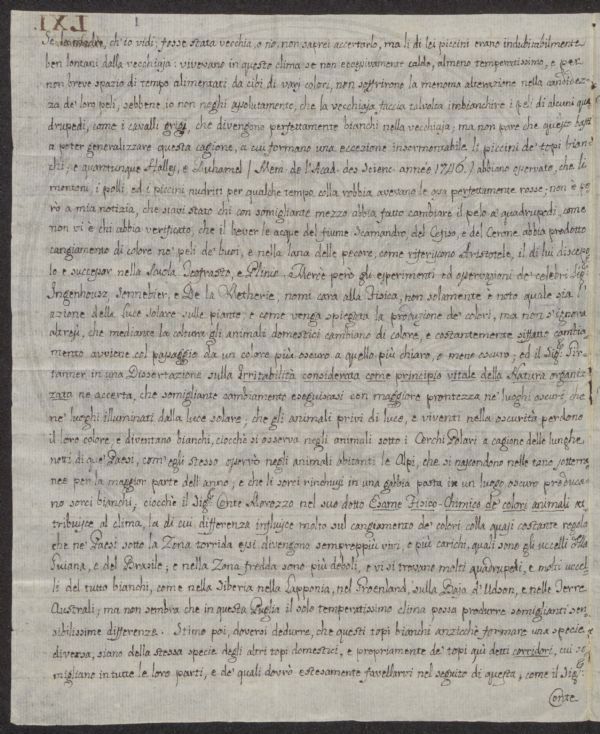 LXI.
Se la madre, ch'io vidi, fosse stata vecchia, o no, non saprei accertarlo, ma li di lei piccini erano indubitabilmente
ben lontani dalla vecchiaja: vivevano in questo clima se non eccessivamente caldo, almeno temperatissimo, e per
non breve spazio di tempo alimentati da cibi di varj colori, non soffrirono la menoma alterazione nella candidez-
za de' loro peli, sebbene io non neghi assolutamente, che la vecchiaja faccia talvolta imbianchire i peli di alcuni qua
drupedi, come i cavalli grigj, che divengono perfettamente bianchi nella vecchiaja; ma non pare che questo basti
a poter generalizzare questa cagione, a cui formano una eccezione insormontabile li piccini de' topi bian
chi; e quantunque Halley, e Duhamel (Mem. de l'Acad. des Scienc. année 1746.) abbiano osservato, che li
montoni, i polli, ed i piccini nudriti per qualche tempo colla robbia avevano le ossa perfettamente rosse; non è pe
rò a mia notizia, che siavi stato chi con somigliante mezzo abbia fatto cambiare il pelo a' quadrupedi, come
non vi è chi abbia verificato, che il bever le acque del fiume Scamandro, del Cefiso, e del Cerone abbia prodotto
cangiamento di colore ne' peli de' buoi, e nella lana delle pecore, come riferirono Aristotele, il di lui discepo
lo e successor nella Scuola Teofrasto, e Plinio. Mercè però gli esperimenti ed osservazioni de' celebri Sigri
Ingenhousz, Sennebier, e De la Metherie, nomi cari alla Fisica, non solamente è noto quale sia l'
azione della luce solare sulle piante, e come venga spiegata la produzione de' colori, ma non s'ignora
altresì, che mediante la coltura gli animali domestici cambiano di colore, e costantemente siffatto cambia
mento avviene col passaggio da un colore più oscuro a quello più chiaro, e meno oscuro; ed il Sigr Gir-
tanner in una Dissertazione sulla Irritabilità considerata come principio vitale della Natura organiz
zata ne accerta, che somigliante cambiamento eseguirasi con maggiore prontezza ne' luoghi oscuri, che
ne' luoghi illuminati dalla luce solare; che gli animali privi di luce, e viventi nella oscurità perdono
il loro colore, e diventano bianchi, ciocchè si osserva negli animali sotto i Cerchi Polari a cagione delle lunghe
notti di que' Paesi, com'egli stesso osservò negli animali abitanti le Alpi, che si nascondono nelle tane sotterra
nee per la maggior parte dell'anno; e che li sorci rinchiusi in una gabbia posta in un luogo oscuro produca
no sorci bianchi, ciocchè il Sigr Conte Morozzo nel suo dotto Esame Fisico-Chimico de' colori animali at
tribuisce al clima, la di cui differenza influisce molto sul cangiamento de' colori colla quasi costante regola
che ne' Paesi sotto la Zona torrida essi divengono semprepiù vivi, e più carichi, quali sono gli uccelli della
Gujana, e del Brasile; e nella Zona fredda sono più deboli, e vi si trovano molti quadrupedi, e molti uccel
li del tutto bianchi, come nella Siberia nella Lapponia, nel Groenland, sulla Baja d'Udson, e nelle Terre
Australi; ma non sembra che in questa Puglia il solo temperatissimo clima possa produrre somiglianti sen
sibilissime differenze. Stimo poi, doversi dedurre, che questi topi bianchi anzicchè formare una specie
diversa, siano della stessa specie degli altri topi domestici, e propriamente de' topi quì detti corridori, cui so
migliano in tutte le loro parti, e de' quali dovrò estesamente favellarvi nel seguito di questa; come il Sigr
Conte